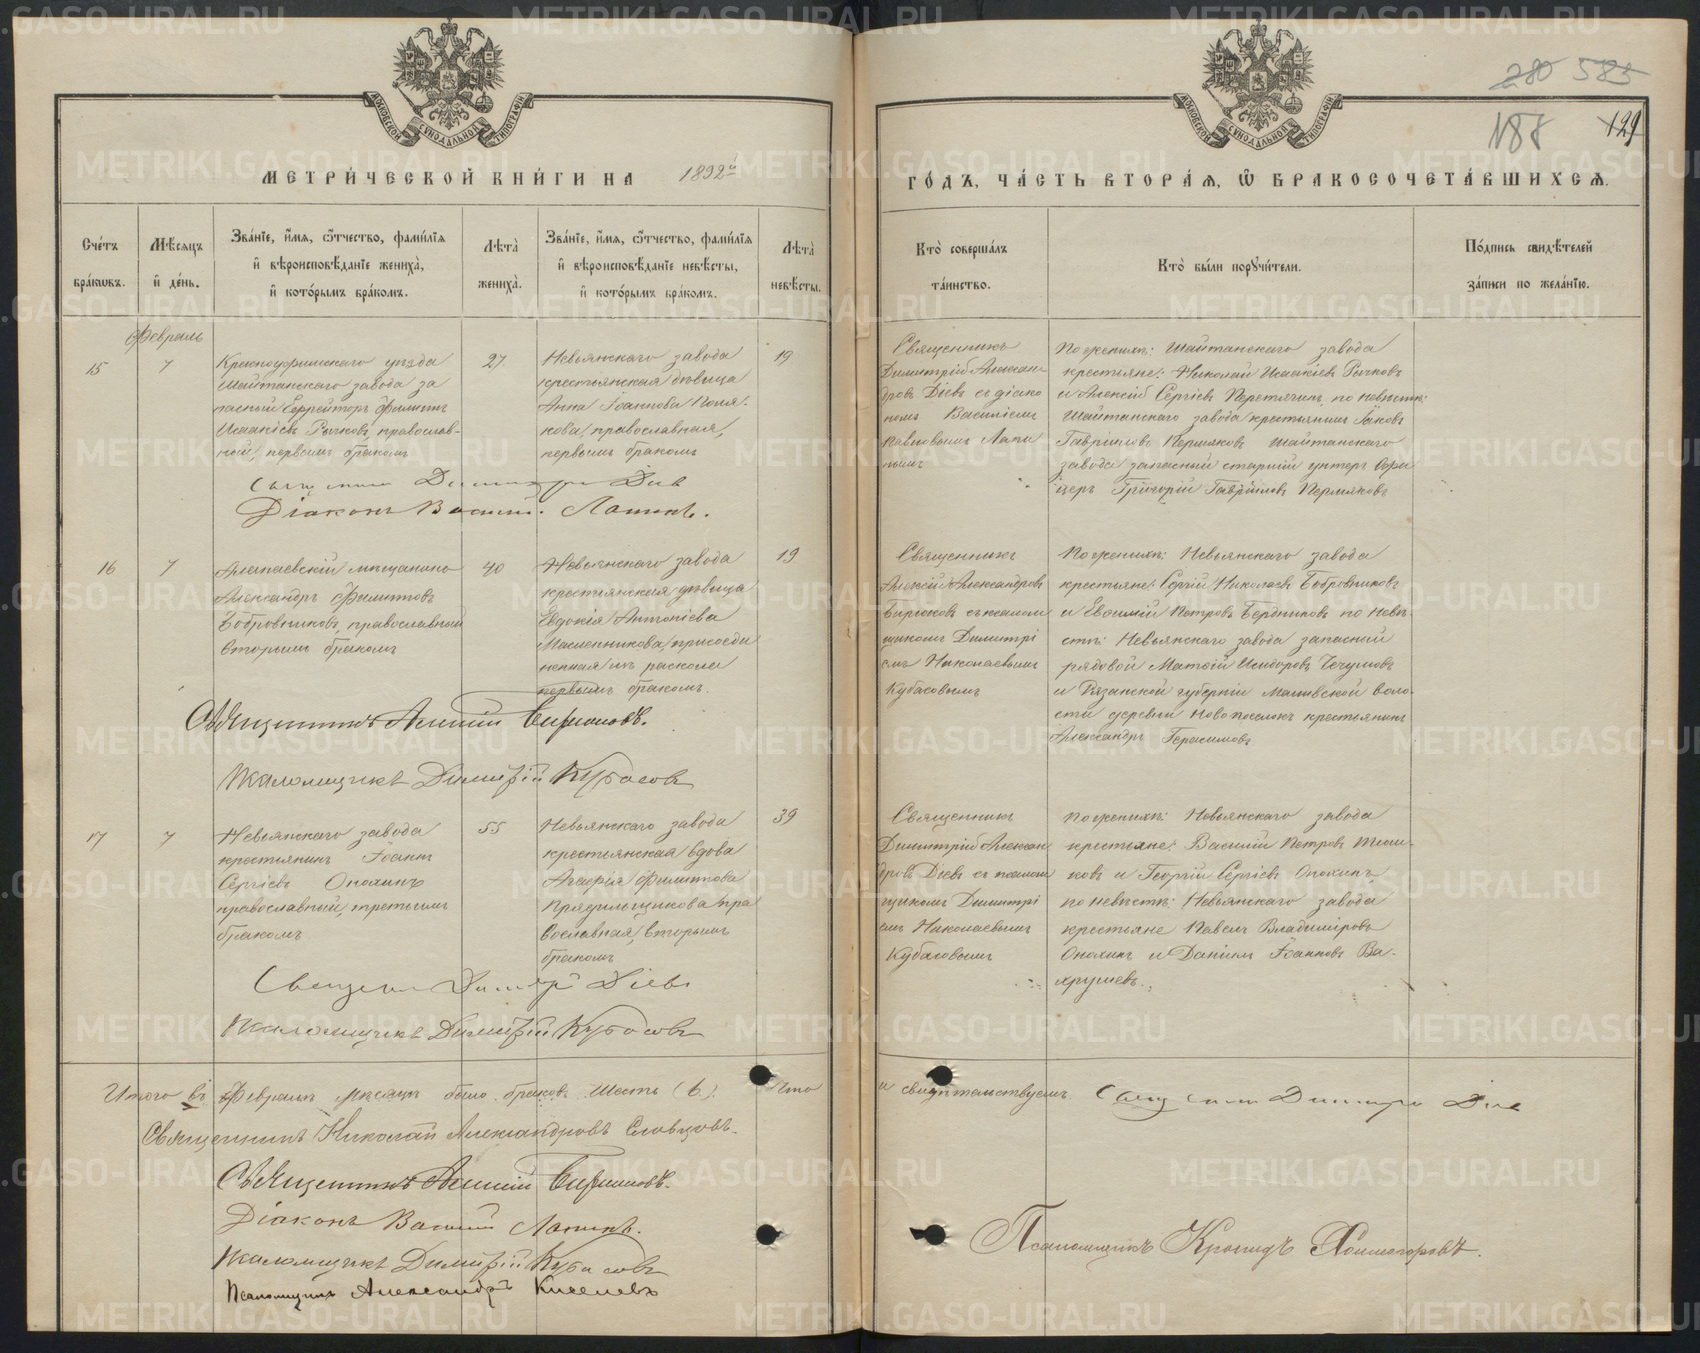 280 585
188 129
МОСКОВСКОЙ СѴНОДАЛЬНОЙ ТИПОГРАФІИ
МОСКОВСКОЙ СѴНОДАЛЬНОЙ ТИПОГРАФІИ
МЕТРИ́ЧЕСКОЙ КНИ́ГИ НА 1892й
ГО́ДЪ, ЧА́СТЬ ВТОРА́Я, Ѡ БРАКОСОЧЕТА́ВШИХСЯ.
Сче́тъ бра́кѡвъ.
Мѣ́сяцъ и҆ де́нь.
Зва́нїе, и҆́мя, ѻ҆́тчество, фами́лїя
и҆ вѣроисповѣ́данїе жениха̀,
и҆ кото́рымъ бра́комъ.
Лѣта̀ жениха̀.
Зва́нїе, и҆́мя, ѻ҆́тчество, фами́лїя
и҆ вѣроисповѣ́данїе невѣ́сты,
и҆ кото́рымъ бра́комъ.
Лѣта̀ невѣ́сты.
Кто̀ соверша́лъ
та́инство.
Кто̀ бы́ли порꙋчи́тели.
По́дпись свидѣ́телей
за́писи по жела́нїю.
Февраль
15
7
Красноуфимскаго уѣзда
Шайтанскаго завода за
пасный Ефрейторъ Филиппъ
Исаакіевъ Рычковъ, православ-
ный, первымъ бракомъ
27
Невьянскаго завода
крестьянская дѣвица
Анна Іоаннова Поля-
кова, православная,
первымъ бракомъ
19
Священникъ
Димитрій Алексан
дровъ Діевъ съ діако
номъ Василіемъ
Павловымъ Лапи
нымъ
По женихѣ: Шайтанскаго завода
крестьяне: Николай Исаакіевъ Рычковъ
и Алексій Сергіевъ Перетягинъ, по невѣстѣ:
Шайтанскаго завода крестьянинъ Іаковъ
Гавріиловъ Пермяковъ Шайтанскаго
завода запасный старшій унтеръ Офи
церъ Григорій Гавріиловъ Пермяковъ
Священникъ Димитрій Діев
Діаконъ Василій Лапинъ.
16
7
Алапаевскій мѣщанинъ
Александръ Филипповъ
Бобровниковъ, православный
вторымъ бракомъ
40
Невьянскаго завода
крестьянская дѣвица
Евдокія Антоніева
Масленникова, присоеди
ненная изъ раскола
первымъ бракомъ.
19
Священникъ
Алексій Александровъ
Бирюковъ съ псалом
щикомъ Димитрі
емъ Николаевымъ
Кубасовымъ
По женихѣ: Невьянскаго завода
крестьяне: Сергій Николаевъ Бобровниковъ
и Евѳимій Петровъ Бердниковъ по невѣ-
стѣ: Невьянскаго завода запасный
рядовой Матѳій Исидоровъ Чечулинъ
и Рязанской губерніи волос-
сти деревни Новопоселокъ крестьянинъ
Александръ Герасимовъ
Священникъ Алексій Бирюковъ.
Псаломщикъ Димитрій Кубасовъ
17
7
Невьянскаго завода
крестьянинъ Іоаннъ
Сергіевъ Опохинъ
православный, третьимъ
бракомъ
55
Невьянскаго завода
крестьянская вдова
Агафія Филиппова
Прядильщикова пра
вославная, вторымъ
бракомъ
39
Священникъ
Димитрій Алексан
дровъ Діевъ съ псалом
щикомъ Димитрі
емъ Николаевымъ
Кубасовымъ
По женихѣ: Невьянскаго завода
крестьяне: Василій Петровъ
ковъ и Георгій Сергіевъ Опохинъ,
по невѣстѣ: Невьянскаго завода
крестьяне Павелъ Владиміровъ
Опохинъ и Даніилъ Іоанновъ Ва-
хрушевъ.
Священникъ Димитрій Діевъ
Псаломщикъ Димитрій Кубасовъ
Итого въ Февралѣ мѣсяцѣ было браковъ шесть (6). Что
и свидѣтельствуемъ Священникъ Димитрій Діев
Священникъ Николай Александровъ Словцовъ.
Священникъ Алексій Бирюковъ.
Діаконъ Василій Лапинъ.
Псаломщикъ Димитрій Кубасовъ
Псаломщикъ Александръ Киселевъ
Псаломщикъ Кронидъ Холмогоровъ.
METRIKI.GASO-URAL.RU